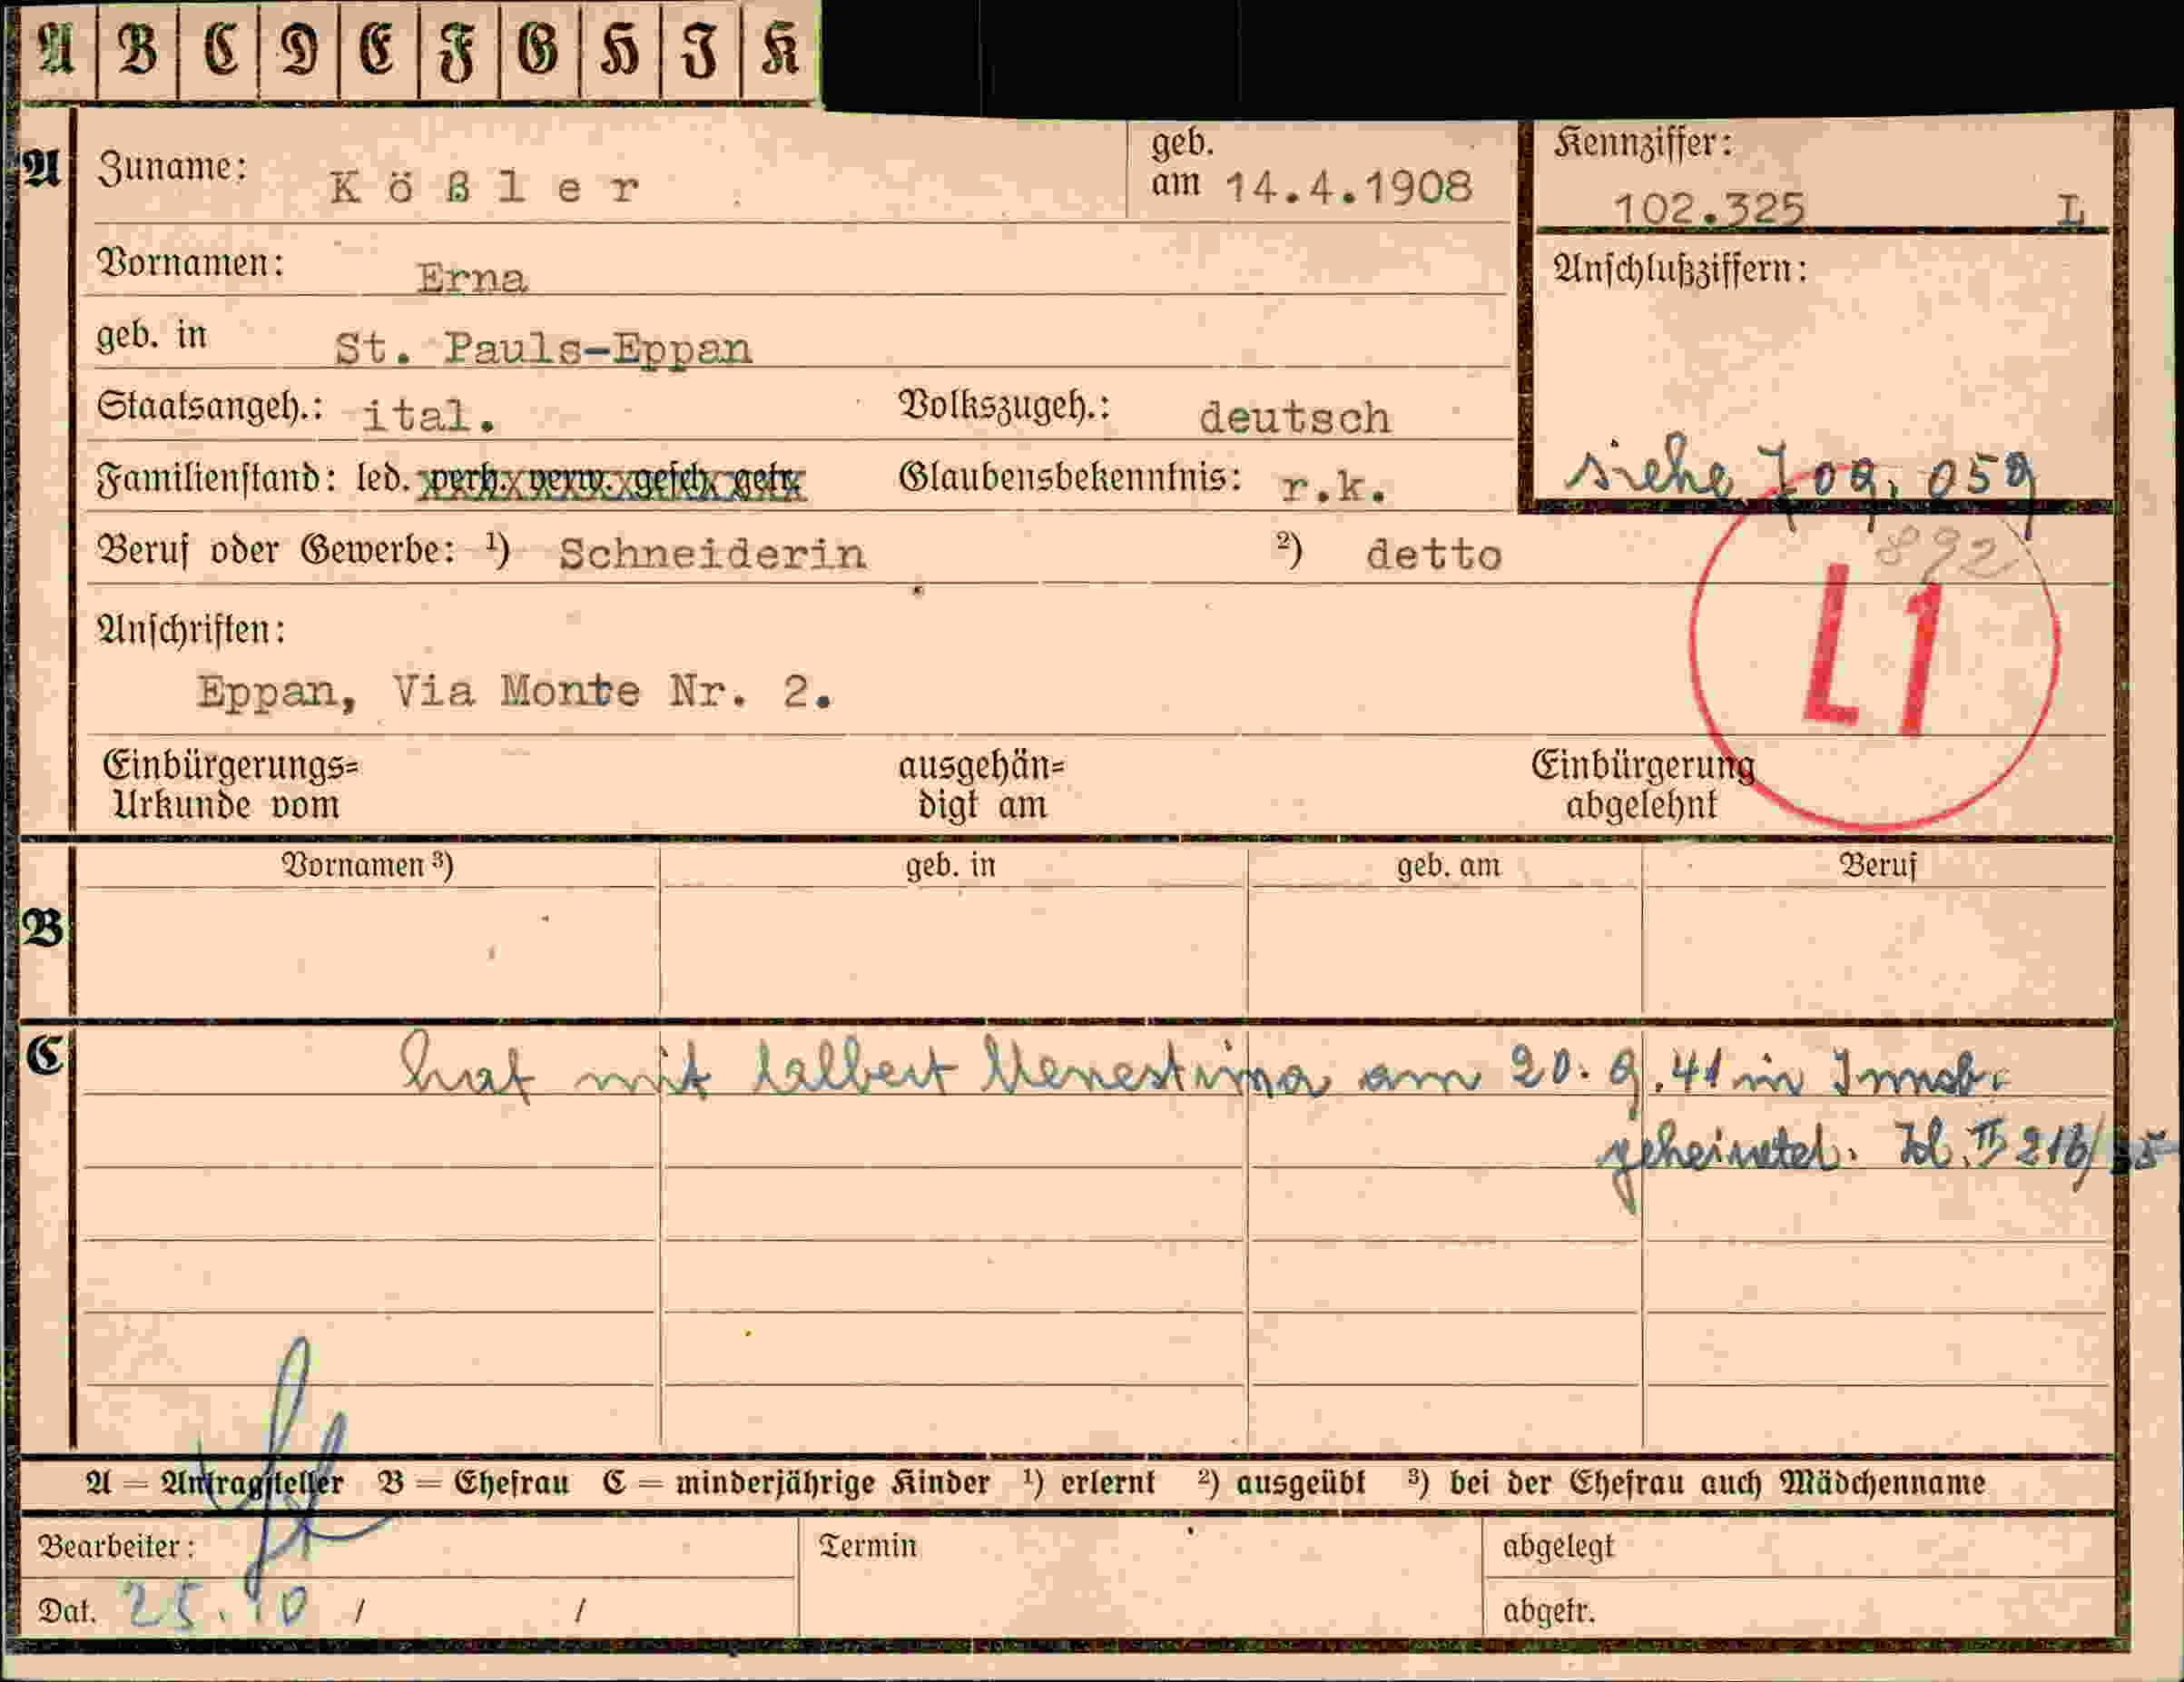 A B C D E F G H I K
A Zuname: Kößler geb. am 14.4.1908 Kennziffer: 102.325 L
Vornamen: Erna Anschlußziffern:
geb. in St. Pauls-Eppan
Staatsangeh.: ital. Volkszugeh.: deutsch
Familienstand: led. verh. verw. gesch. getr. Glaubensbekenntnis: r.k. siehe 709.059
Beruf oder Gewerbe: ¹) Schneiderin ²) detto 892
Anschriften: L1
Eppan, Via Monte Nr. 2.
Einbürgerungs= ausgehän= Einbürgerung
Urkunde vom digt am abgelehnt
Vornamen ³) geb. in geb. am Beruf
B
C hat mit Menestrina am 20.9.41 in Innsbr.
geheiratet. II 216/
A = Antragsteller B = Ehefrau C = minderjährige Kinder ¹) erlernt ²) ausgeübt ³) bei der Ehefrau auch Mädchenname
Bearbeiter: Termin abgelegt
Dat. 25.10 / / abgetr.